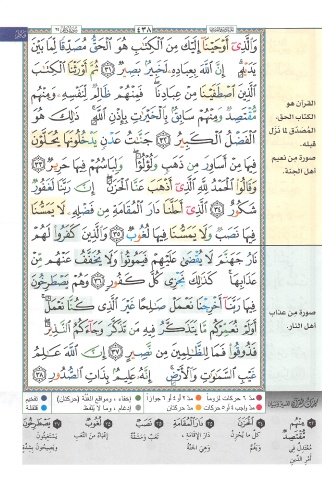 ٤٣٨
وَٱلَّذِىٓ أَوْحَيْنَآ إِلَيْكَ مِنَ ٱلْكِتَٰبِ هُوَ ٱلْحَقُّ مُصَدِّقًا لِّمَا بَيْنَ
يَدَيْهِ إِنَّ ٱللَّهَ بِعِبَادِهِۦ لَخَبِيرٌۢ بَصِيرٌ ٣١ ثُمَّ أَوْرَثْنَا ٱلْكِتَٰبَ
ٱلَّذِينَ ٱصْطَفَيْنَا مِنْ عِبَادِنَا فَمِنْهُمْ ظَالِمٌ لِّنَفْسِهِۦ وَمِنْهُم
مُّقْتَصِدٌ وَمِنْهُمْ سَابِقٌۢ بِٱلْخَيْرَٰتِ بِإِذْنِ ٱللَّهِ ذَٰلِكَ هُوَ
ٱلْفَضْلُ ٱلْكَبِيرُ ٣٢ جَنَّٰتُ عَدْنٍ يَدْخُلُونَهَا يُحَلَّوْنَ
فِيهَا مِنْ أَسَاوِرَ مِن ذَهَبٍ وَلُؤْلُؤًا وَلِبَاسُهُمْ فِيهَا حَرِيرٌ ٣٣
وَقَالُوا۟ ٱلْحَمْدُ لِلَّهِ ٱلَّذِىٓ أَذْهَبَ عَنَّا ٱلْحَزَنَ إِنَّ رَبَّنَا لَغَفُورٌ
شَكُورٌ ٣٤ ٱلَّذِىٓ أَحَلَّنَا دَارَ ٱلْمُقَامَةِ مِن فَضْلِهِۦ لَا يَمَسُّنَا
فِيهَا نَصَبٌ وَلَا يَمَسُّنَا فِيهَا لُغُوبٌ ٣٥ وَٱلَّذِينَ كَفَرُوا۟ لَهُمْ
نَارُ جَهَنَّمَ لَا يُقْضَىٰ عَلَيْهِمْ فَيَمُوتُوا۟ وَلَا يُخَفَّفُ عَنْهُم مِّنْ
عَذَابِهَا كَذَٰلِكَ نَجْزِى كُلَّ كَفُورٍ ٣٦ وَهُمْ يَصْطَرِخُونَ
فِيهَا رَبَّنَآ أَخْرِجْنَا نَعْمَلْ صَٰلِحًا غَيْرَ ٱلَّذِى كُنَّا نَعْمَلُ
أَوَلَمْ نُعَمِّرْكُم مَّا يَتَذَكَّرُ فِيهِ مَن تَذَكَّرَ وَجَآءَكُمُ ٱلنَّذِيرُ
فَذُوقُوا۟ فَمَا لِلظَّٰلِمِينَ مِن نَّصِيرٍ ٣٧ إِنَّ ٱللَّهَ عَٰلِمُ
غَيْبِ ٱلسَّمَٰوَٰتِ وَٱلْأَرْضِ إِنَّهُۥ عَلِيمٌۢ بِذَاتِ ٱلصُّدُورِ ٣٨
القرآن هو
الكتاب الحق،
المُصَدِّق لما نزل
قبله.
صورة من نعيم
أهل الجنة.
صورة من عذاب
أهل النار.
مدّ ٦ حركات لزوماً مدّ ٢ أو ٤ أو ٦ جوازاً إخفاء، ومواقع الغُنَّة (حركتان) تفخيم
مدّ واجب ٤ أو ٥ حركات مدّ حركتان إدغام، وما لا يُلفَظ قلقلة
مُقْتَصِدٌ
ٱلْحَزَنَ
دَارَ ٱلْمُقَامَةِ
نَصَبٌ
تعب ومشقة
لُغُوبٌ
يَصْطَرِخُونَ